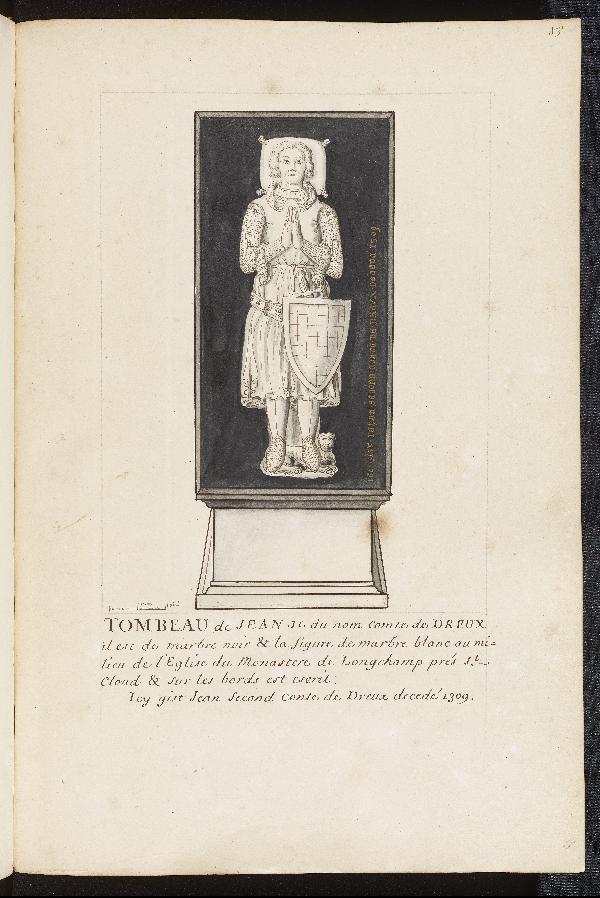 TOMBEAU de JEAN 2e. du nom comte de DREUX,
il est de marbre noir & la figure de marbre blanc au mi=
lieu de l'Eglise du Monastere de Longchamp prés St.
Cloud & sur les bords est escrit;
Icy gist Jean Second Conte de Dreux decedé 1309.